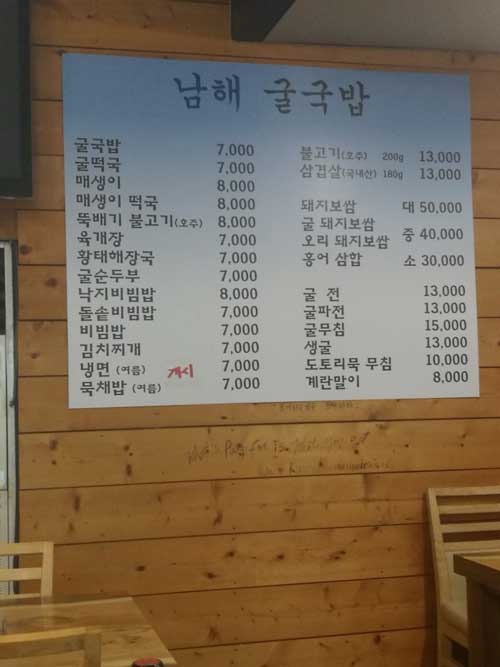 남해 굴국밥
굴국밥 7,000
굴떡국 7,000
매생이 8,000
매생이 떡국 8,000
뚝배기 불고기(호주) 8,000
육개장 7,000
황태해장국 7,000
굴순두부 7,000
낙지비빔밥 8,000
돌솥비빔밥 7,000
비빔밥 7,000
김치찌개 7,000
냉면 (여름) 개시 7,000
묵채밥 (여름) 7,000
불고기(호주) 200g 13,000
삼겹살(국내산) 180g 13,000
돼지보쌈 대 50,000
굴 돼지보쌈
오리 돼지보쌈 중 40,000
홍어 삼합 소 30,000
굴 전 13,000
굴파전 13,000
굴무침 15,000
생굴 13,000
도토리묵 무침 10,000
계란말이 8,000